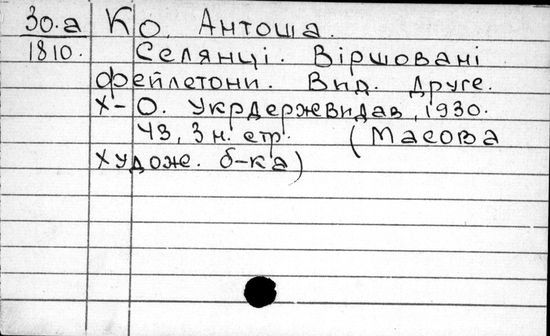 30.а Ко, Антоша.
1810. Селянці. Віршовані
фейлетони. Вид. друге.
Х-О. Укрдержвидав, 1930.
43, 3 н. стр. (Масова
худож. б-ка)